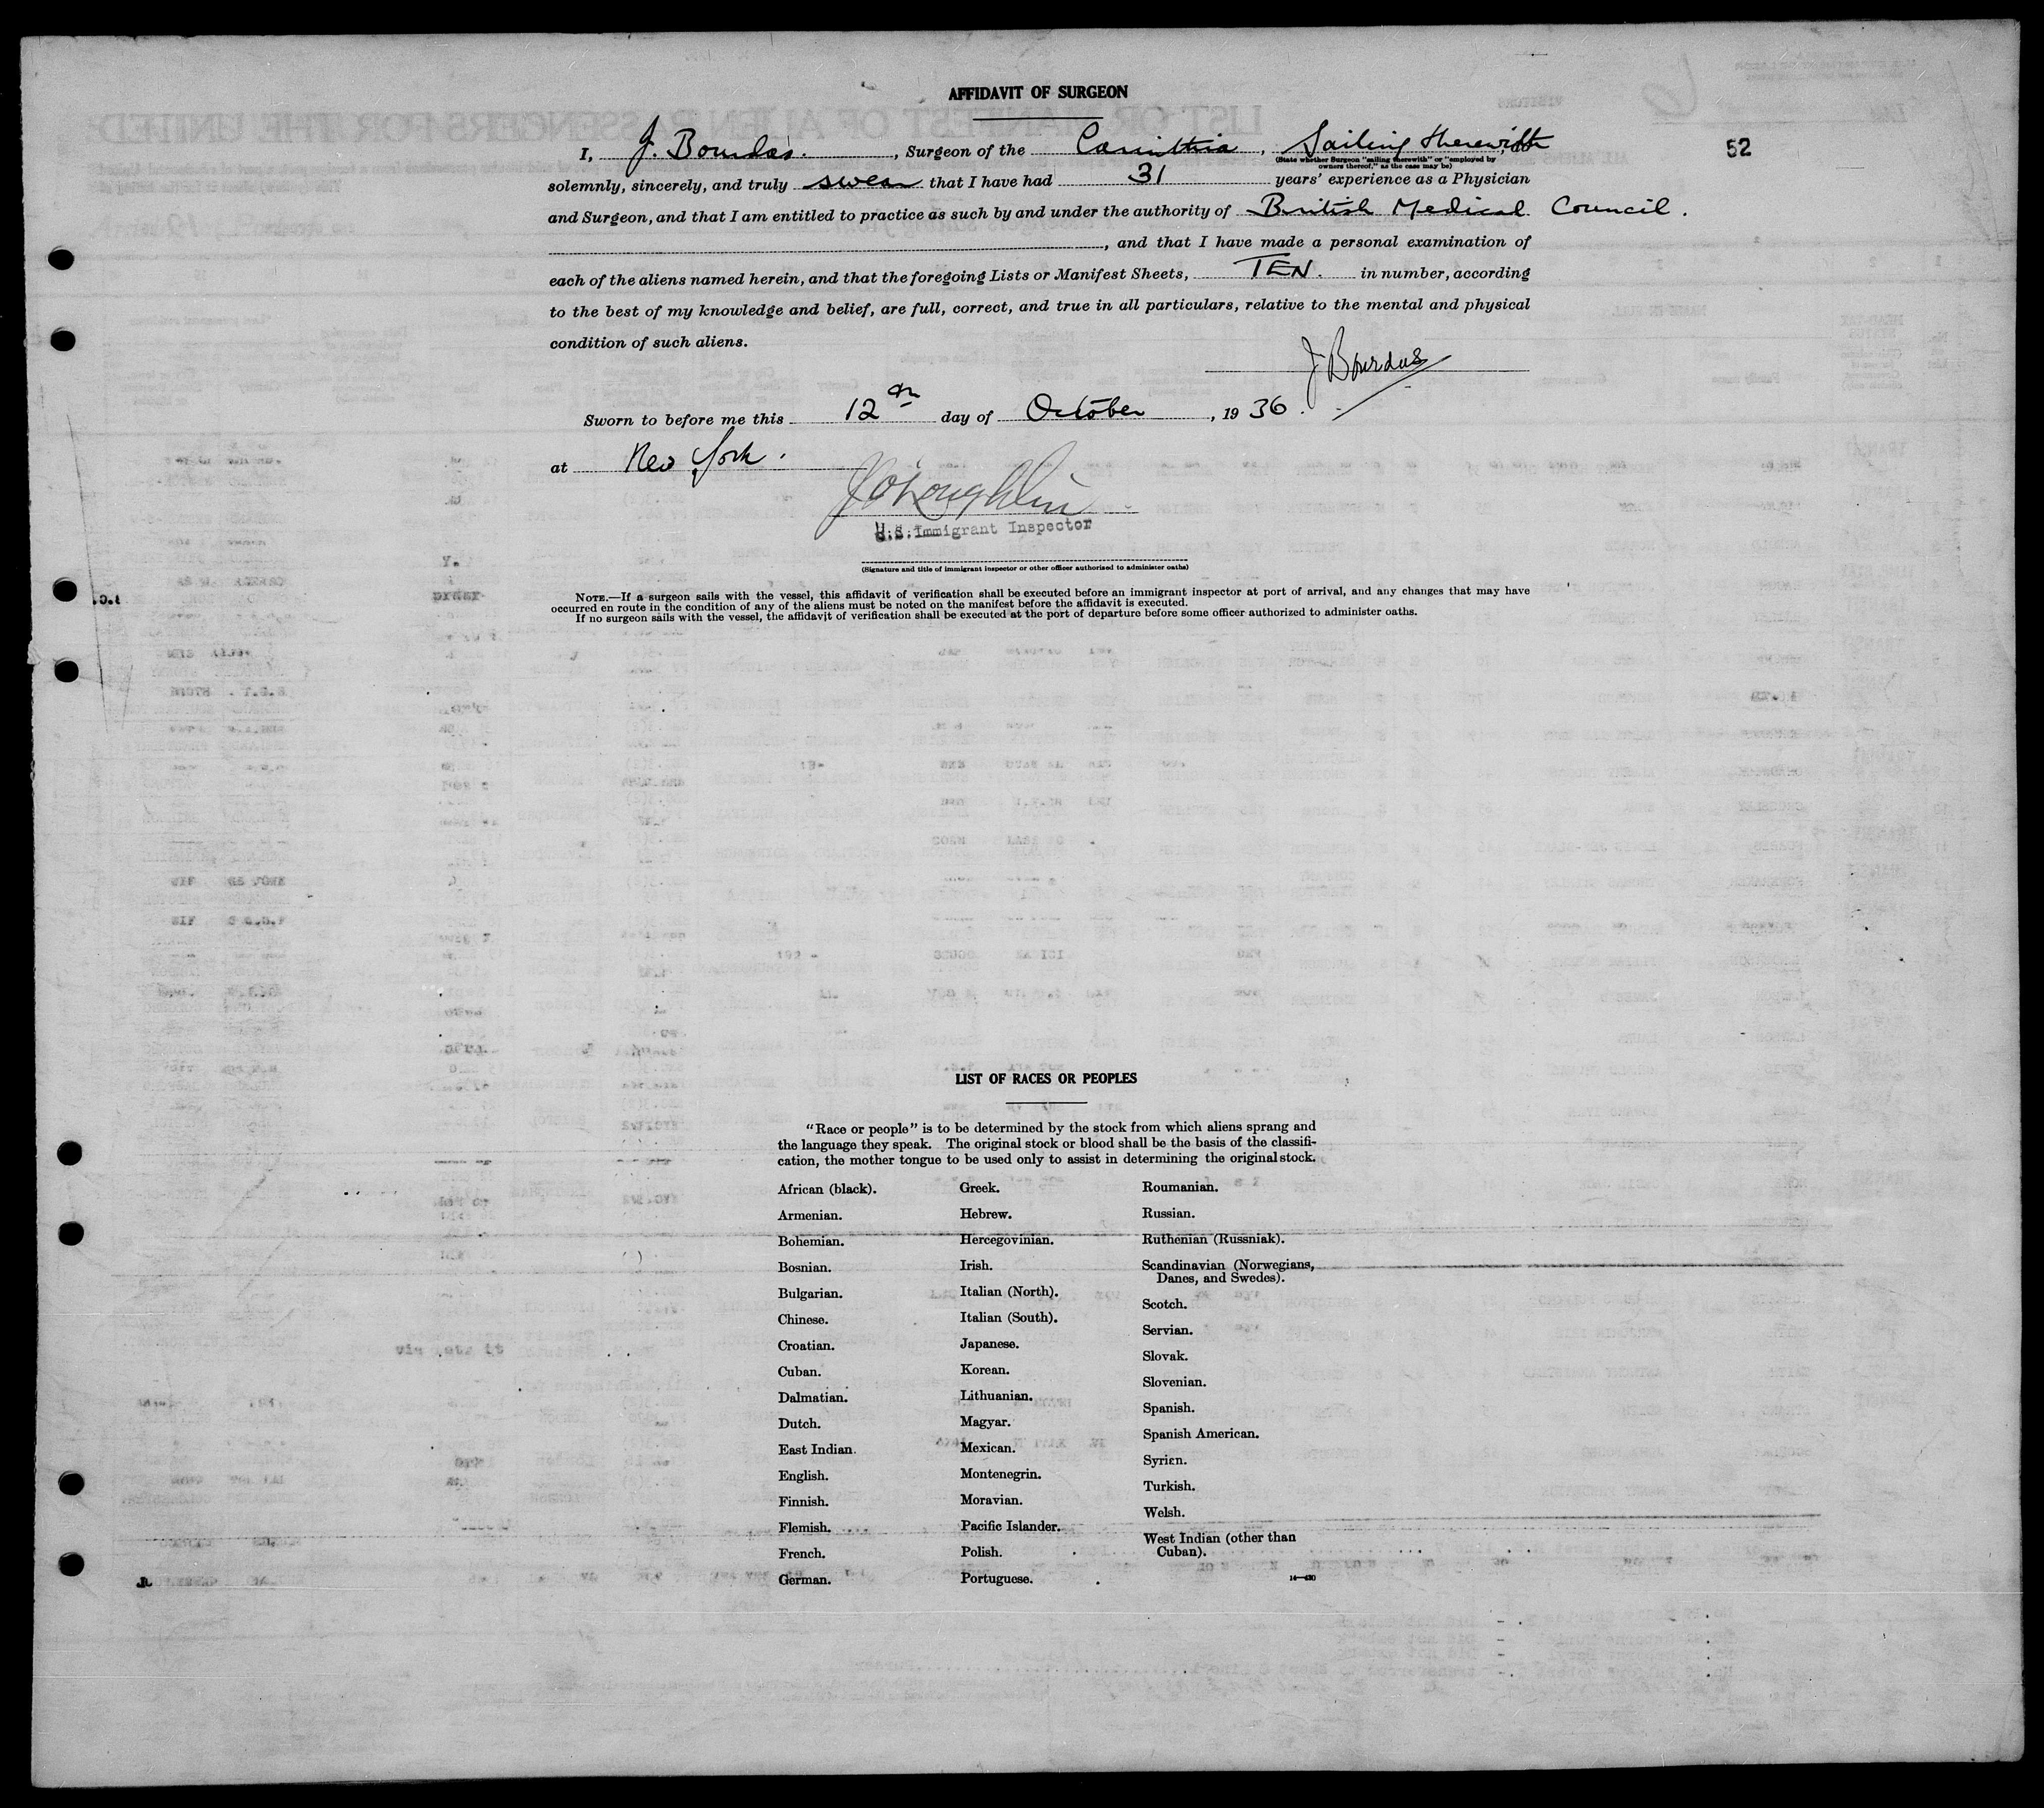 AFFIDAVIT OF SURGEON
52
I, J. Bourdas., Surgeon of the Carinthia, Sailing therewith
(State whether Surgeon "sailing therewith" or "employed by
owners thereof," as the case may be)
solemnly, sincerely, and truly swear that I have had 31 years' experience as a Physician
and Surgeon, and that I am entitled to practice as such by and under the authority of British Medical Council.
, and that I have made a personal examination of
each of the aliens named herein, and that the foregoing Lists or Manifest Sheets, TEN. in number, according
to the best of my knowledge and belief, are full, correct, and true in all particulars, relative to the mental and physical
condition of such aliens.
J Bourdas
Sworn to before me this 12th day of October, 1936.
at New York.
J O'Loughlin
U.S. Immigrant Inspector
(Signature and title of immigrant inspector or other officer authorized to administer oaths)
NOTE.—If a surgeon sails with the vessel, this affidavit of verification shall be executed before an immigrant inspector at port of arrival, and any changes that may have
occurred en route in the condition of any of the aliens must be noted on the manifest before the affidavit is executed.
If no surgeon sails with the vessel, the affidavit of verification shall be executed at the port of departure before some officer authorized to administer oaths.
LIST OF RACES OR PEOPLES
"Race or people" is to be determined by the stock from which aliens sprang and
the language they speak. The original stock or blood shall be the basis of the classifi-
cation, the mother tongue to be used only to assist in determining the original stock.
African (black).
Armenian.
Bohemian.
Bosnian.
Bulgarian.
Chinese.
Croatian.
Cuban.
Dalmatian.
Dutch.
East Indian.
English.
Finnish.
Flemish.
French.
German.
Greek.
Hebrew.
Hercegovinian.
Irish.
Italian (North).
Italian (South).
Japanese.
Korean.
Lithuanian.
Magyar.
Mexican.
Montenegrin.
Moravian.
Pacific Islander.
Polish.
Portuguese.
Roumanian.
Russian.
Ruthenian (Russniak).
Scandinavian (Norwegians,
Danes, and Swedes).
Scotch.
Servian.
Slovak.
Slovenian.
Spanish.
Spanish American.
Syrian.
Turkish.
Welsh.
West Indian (other than
Cuban).